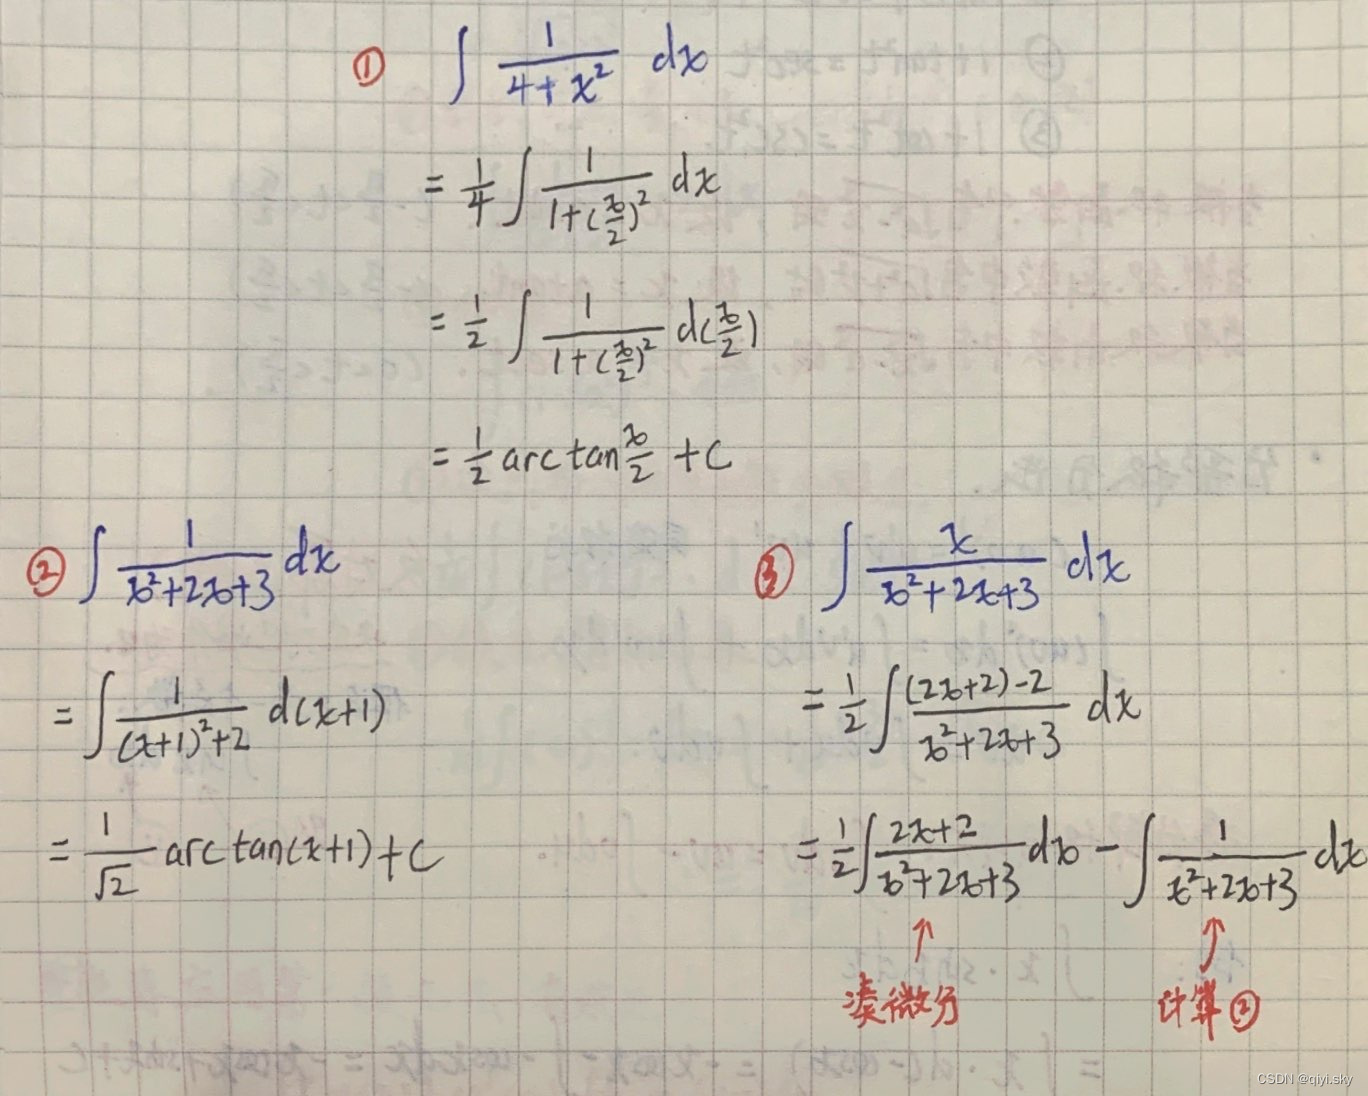 ① ∫ 1/(4+x²) dx
= 1/4 ∫ 1/(1+(x/2)²) dx
= 1/2 ∫ 1/(1+(x/2)²) d(x/2)
= 1/2 arctan x/2 + C
② ∫ 1/(x²+2x+3) dx
= ∫ 1/((x+1)²+2) d(x+1)
= 1/√2 arctan(x+1)+C
③ ∫ x/(x²+2x+3) dx
= 1/2 ∫ ((2x+2)-2)/(x²+2x+3) dx
= 1/2 ∫ (2x+2)/(x²+2x+3) dx - ∫ 1/(x²+2x+3) dx
↑ ↑
凑微分 计算②
CSDN @qiyi.sky